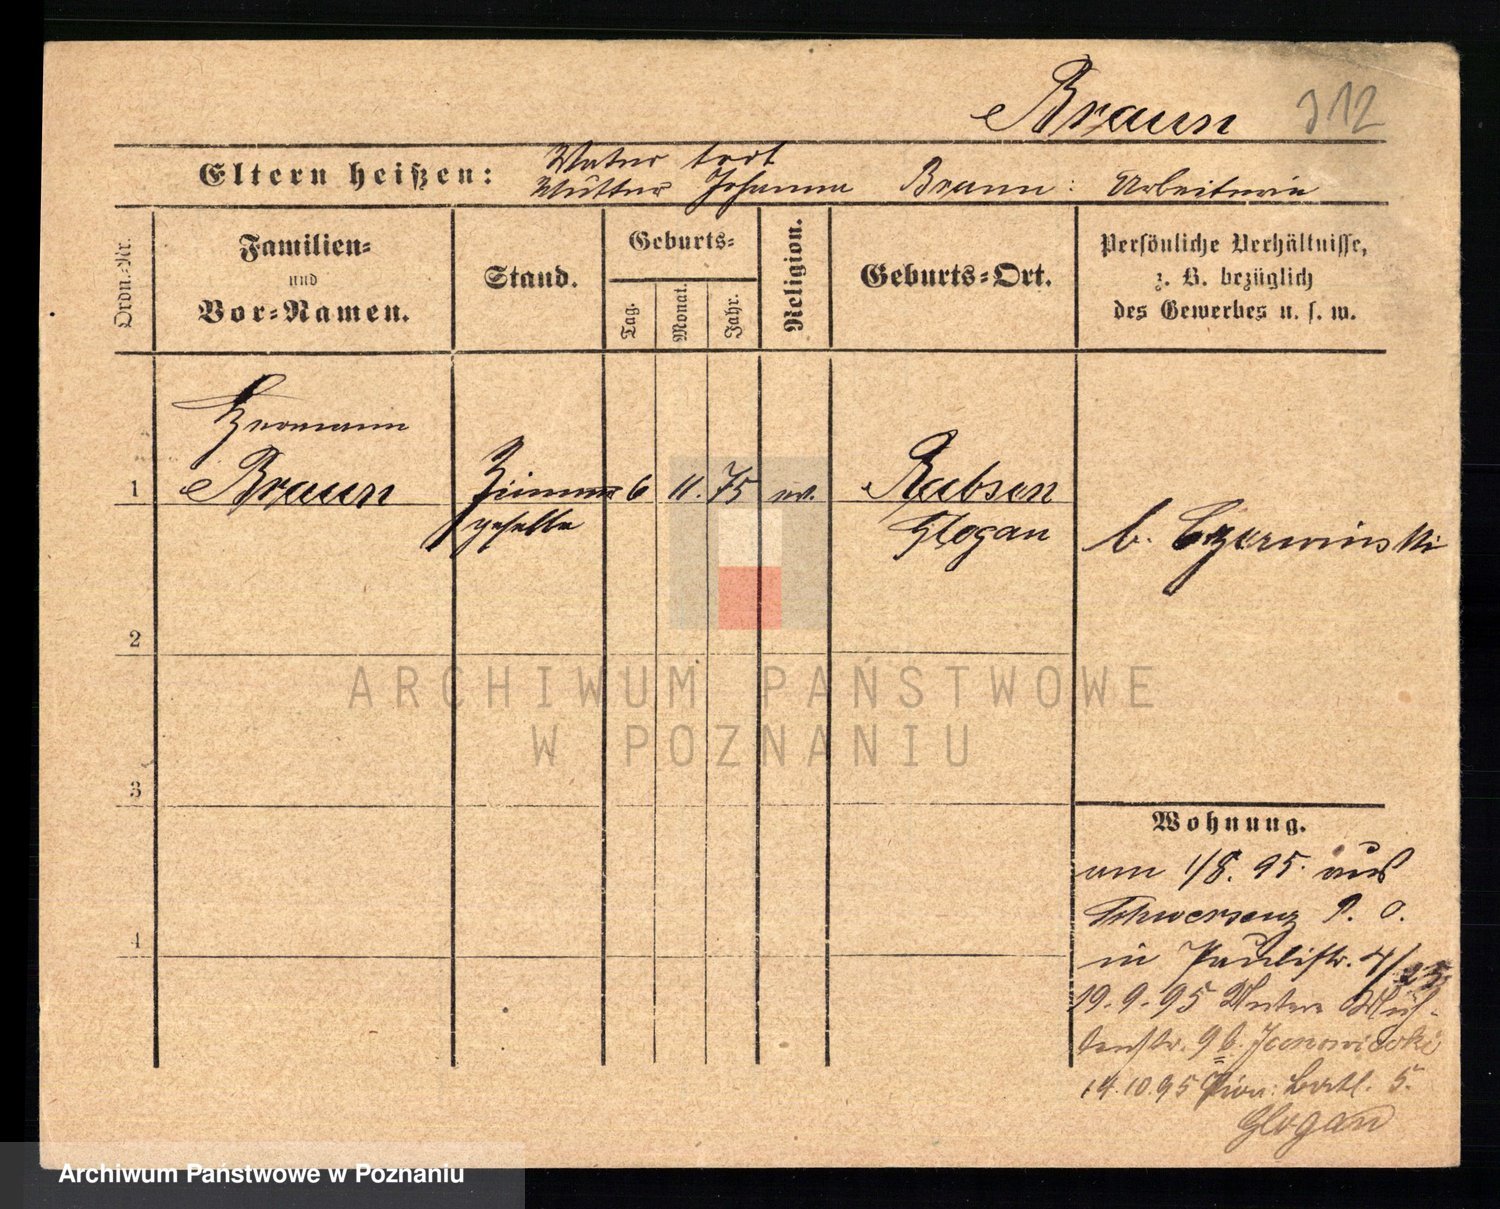 Braun 312
Eltern heißen: Vater todt
Mutter Johanna Braun: Arbeiterin
Ordn.=Nr.
Familien=
und
Vor=Namen.
Stand.
Geburts=
Tag.
Monat.
Jahr.
Religion.
Geburts=Ort.
Persönliche Verhältnisse,
z. B. bezüglich
des Gewerbes u. s. w.
Hermann
1 Braun Zimmer 6 11. 75 ev. Rabsen
geselle Glogau b. Czerwinski
2
ARCHIWUM PAŃSTWOWE
W POZNANIU
3
Wohnung.
am 1/8. 95. aus
Schwersenz P. O.
in Paulistr. 4/
4
19.9.95 Untere Müh-
lenstr. 9 b.
14.10.95 Pion: Batl. 5.
Glogau
Archiwum Państwowe w Poznaniu